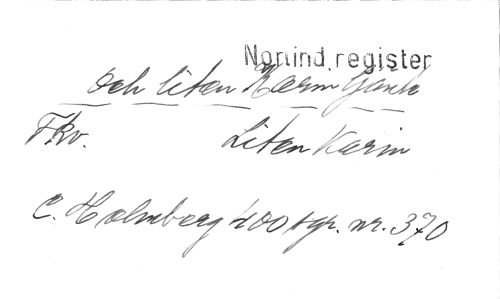 Nortind.register
Och liten Karin
Fkv. Liten Karin
C. Holmberg 400 tgr. nr. 370